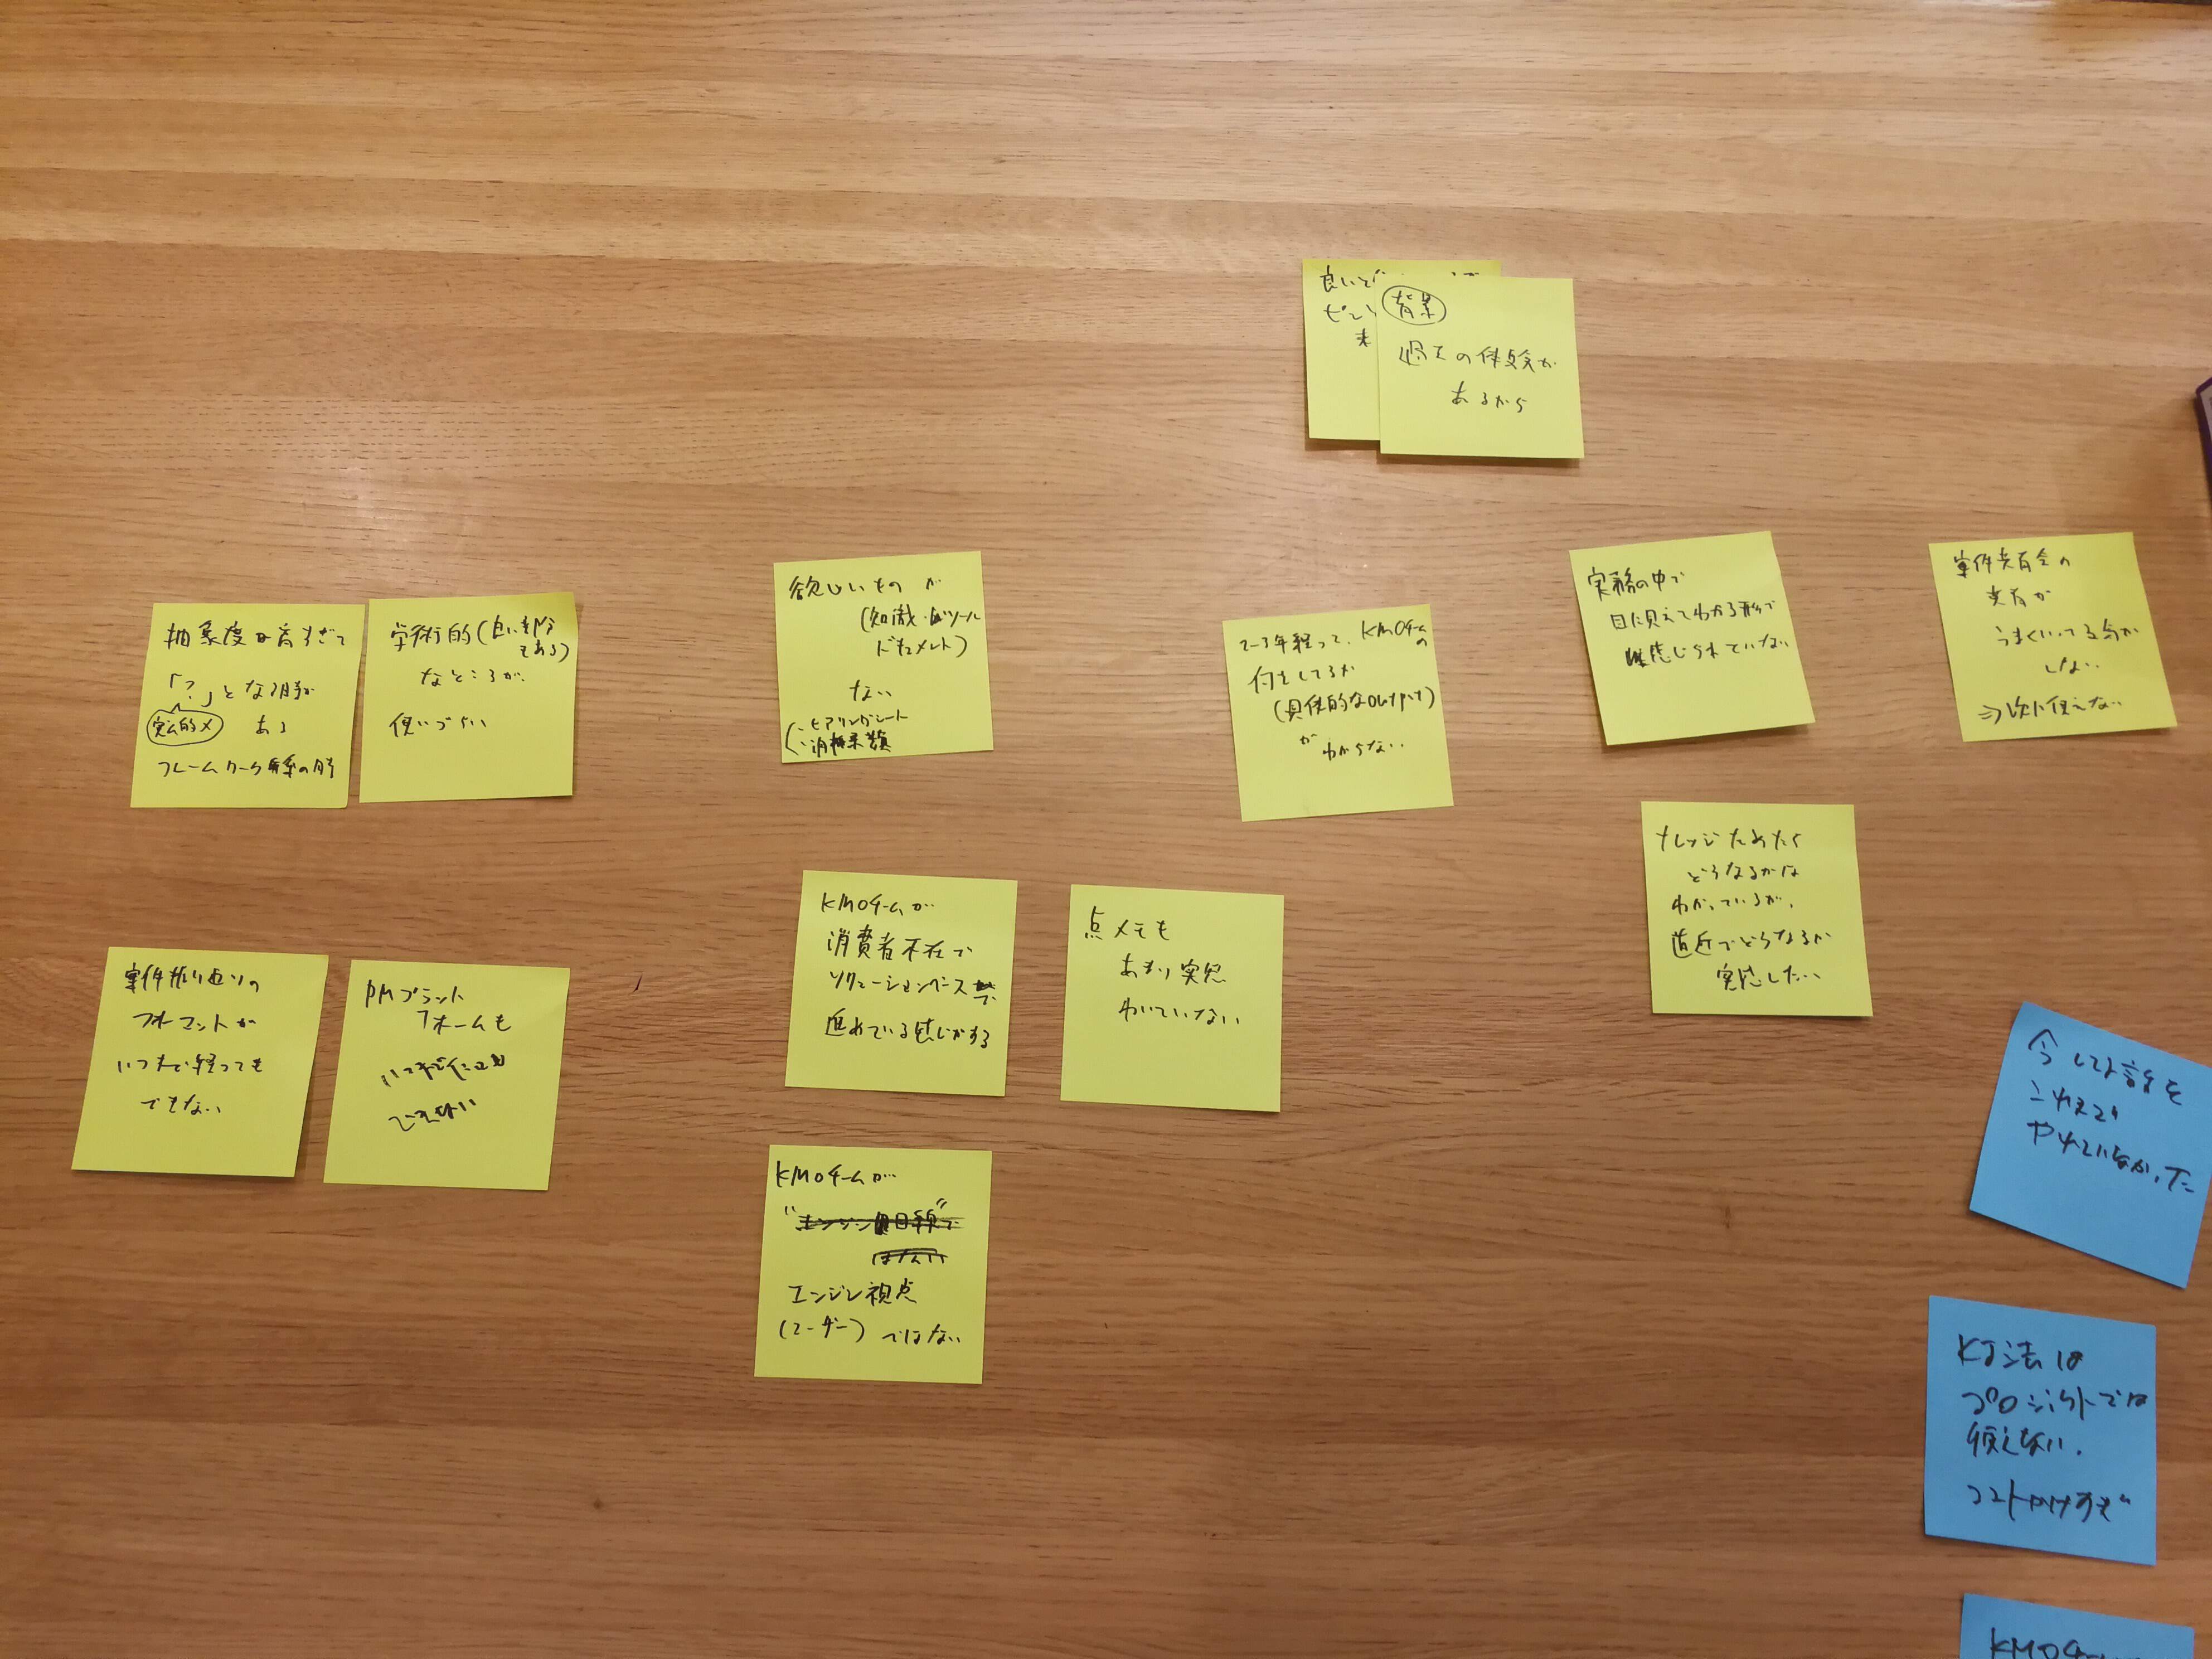 良いと
ピン
背景
過去の体験が
あるから
抽象度が高すぎて
「?」となる時が
ある
フレームワーク
学術的(良い部分
もある)
なところが、
使いづらい
欲しいものが
(知識・ツール
ドキュメント)
ない
・ヒアリングシート
2〜3年経って、KMOチームの
何をしてるか
(具体的なOutput)
が
わからない
実務の中で
目に見えてわかる形で
感じられていない
案件共有会の
共有が
うまくいってる気が
しない
⇒次に使えない
ナレッジためたら
どうなるかは
わかっているが、
直近でどうなるか
実感したい
案件振り返りの
フォーマットが
いつまで経っても
できない
PMプラット
フォームも
いつまで たっても
できない
KMOチームが
消費者不在で
ソリューションベースで
進めている感じがする
点メモも
あまり実感
わいていない
KMOチームが
エンジン視点
(ユーザー) ではない
今してる話を
これまで
やれていなかった
KJ法は
プロジェクトでは
使えない。
コストかけすぎ
KMOチーム